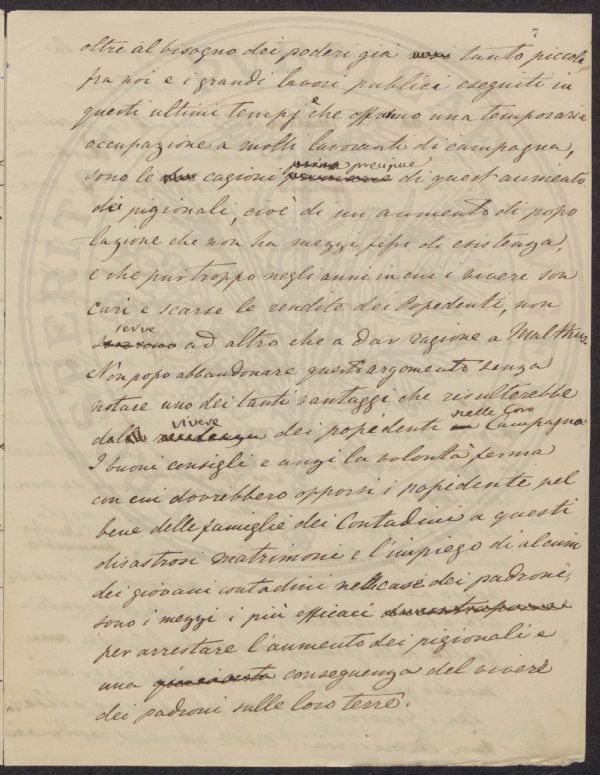 7
oltre al bisogno dei poderi già tanto piccoli
fra noi e i grandi lavori publici eseguiti in
questi ultimi tempi e che offrono una temporaria
occupazione a molti lavoranti di campagna,
prime precipue
sono le cagioni di quest'aumento
dei pigionali, cioè di un aumento di popo
lazione che non ha mezzi fissi di esistenza,
e che purtroppo negli anni in cui i viveri son
cari e scarse le rendite dei Possedenti, non
serve
ad altro che a dar ragione a Malthus.
Non posso abbandonare quest'argomento senza
notare uno dei tanti vantaggi che risulterebbe
vivere nelle loro
dal dei possedenti Campagne.
I buoni consigli e anzi la volontà ferma
con cui dovrebbero opporsi i possidenti pel
bene delle famiglie dei Contadini a questi
disastrosi matrimoni e l'impiego di alcuni
dei giovani contadini nelle case dei padroni,
sono i mezzi i più efficaci
per arrestare l'aumento dei pigionali e
una conseguenza del vivere
dei padroni sulle loro terre.